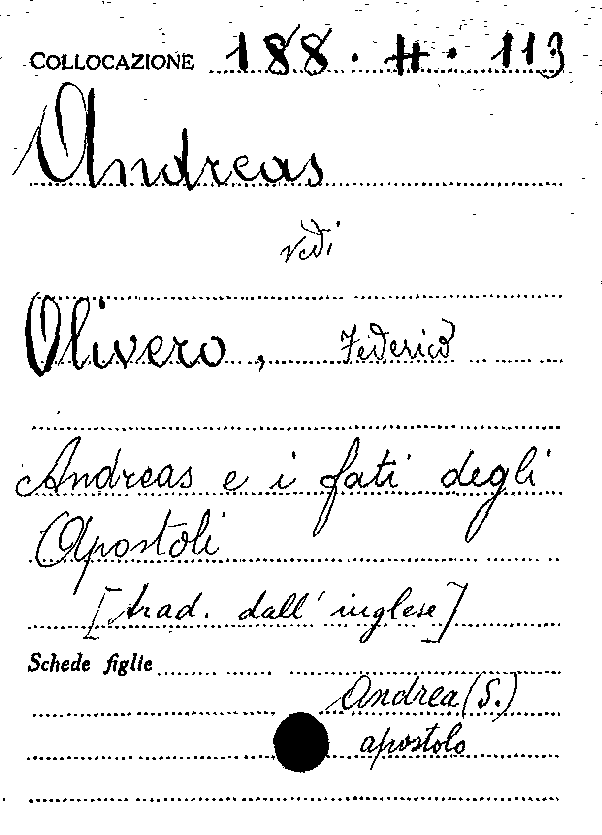 COLLOCAZIONE 188. H. 113
Andreas
vedi
Olivero, Federico
Andreas e i fati degli
Apostoli
[trad. dall' inglese]
Schede figlie
Andrea (S.)
apostolo